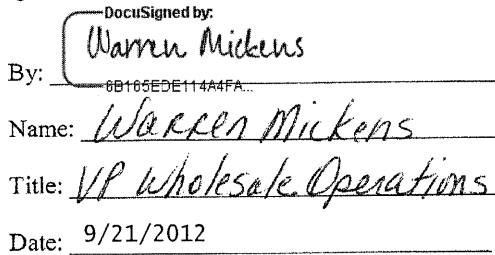 DocuSigned by:
Warren Mickens
By:
6B165EDE114A4FA...
Name: Warren Mickens
Title: VP Wholesale Operations
Date: 9/21/2012